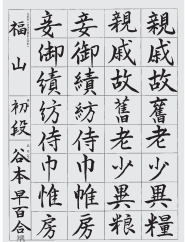 親戚故舊老少異糧
親戚故舊老少異粮
妾御績紡侍巾帷房
妾御績紡侍巾帷房
福山 初段 谷本早百合